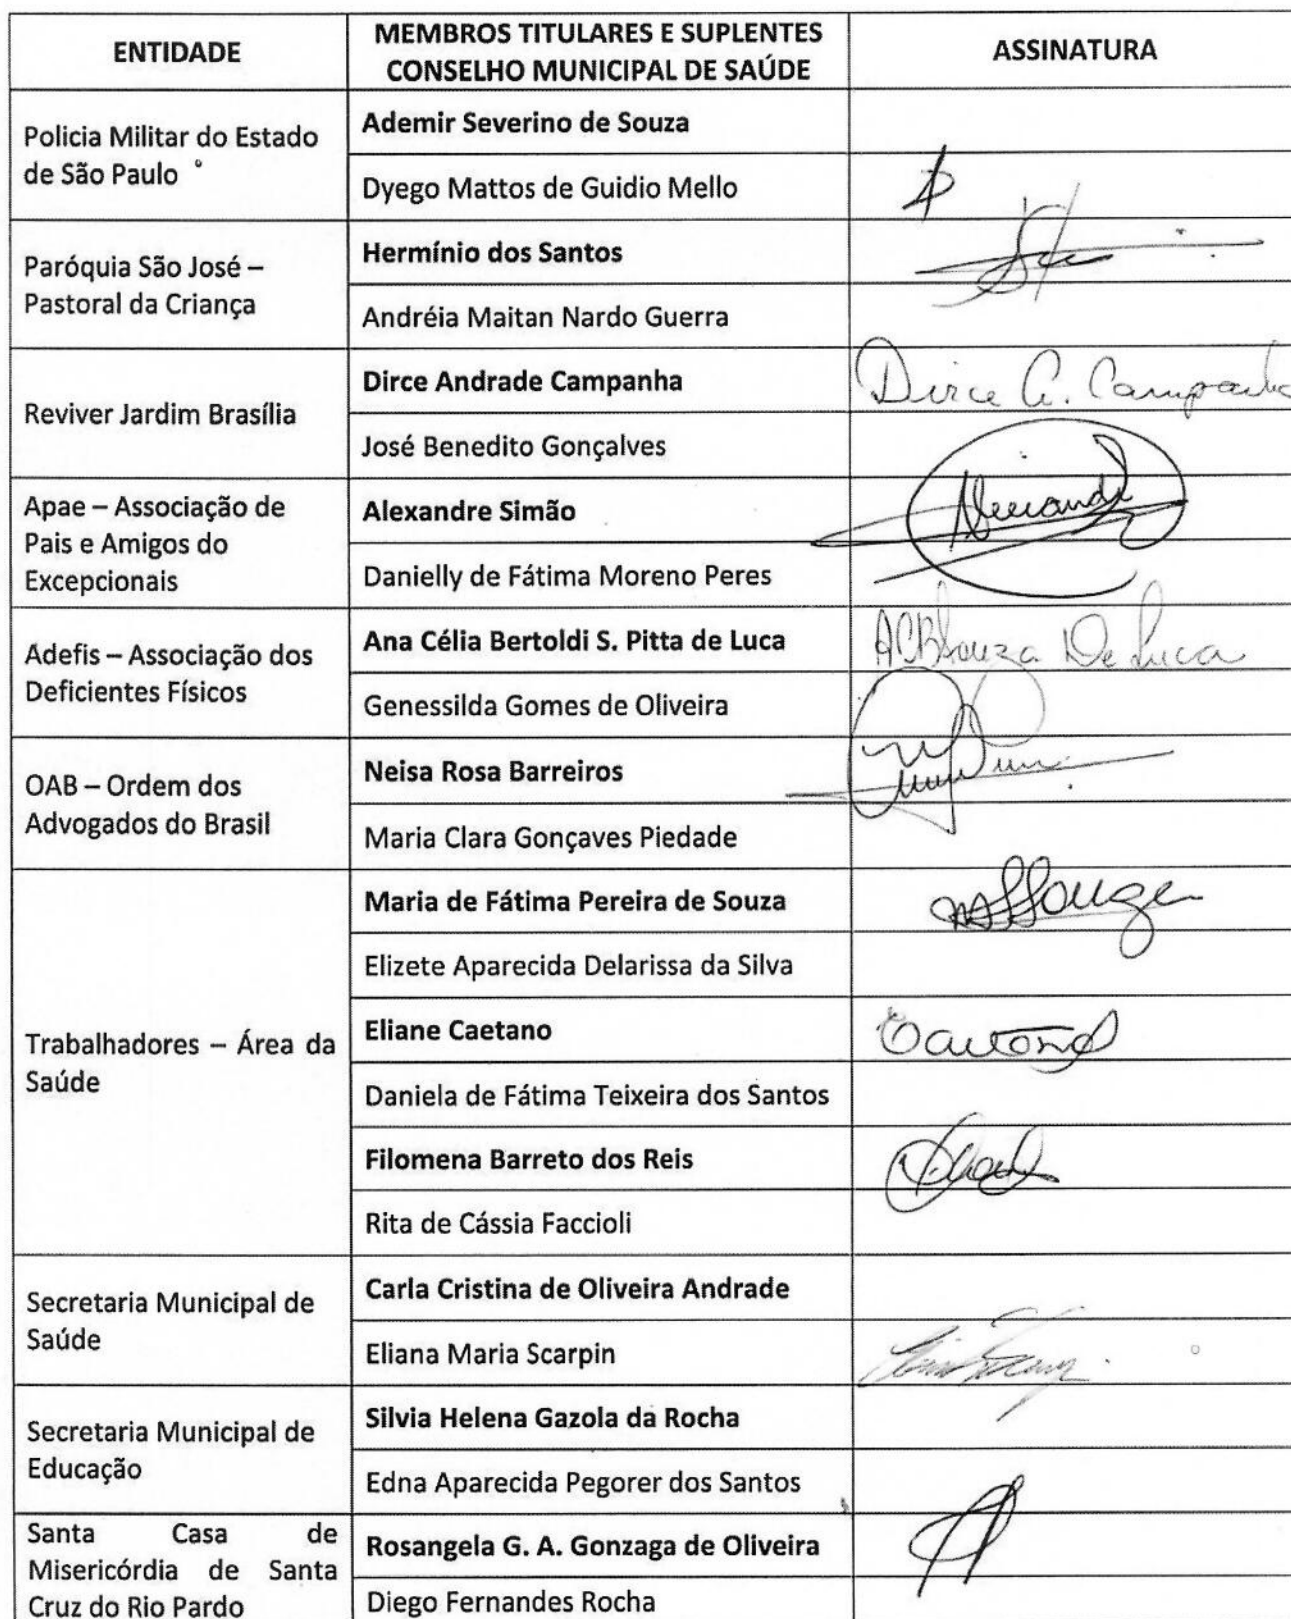 ENTIDADE
MEMBROS TITULARES E SUPLENTES
CONSELHO MUNICIPAL DE SAÚDE
ASSINATURA
Policia Militar do Estado
de São Paulo
Ademir Severino de Souza
Dyego Mattos de Guidio Mello
Paróquia São José –
Pastoral da Criança
Hermínio dos Santos
Andréia Maitan Nardo Guerra
Reviver Jardim Brasília
Dirce Andrade Campanha
Dirce A. Campanha
José Benedito Gonçalves
Apae – Associação de
Pais e Amigos do
Excepcionais
Alexandre Simão
Danielly de Fátima Moreno Peres
Adefis – Associação dos
Deficientes Físicos
Ana Célia Bertoldi S. Pitta de Luca
ACBSouza De Luca
Genessilda Gomes de Oliveira
OAB – Ordem dos
Advogados do Brasil
Neisa Rosa Barreiros
Maria Clara Gonçaves Piedade
Trabalhadores – Área da
Saúde
Maria de Fátima Pereira de Souza
Elizete Aparecida Delarissa da Silva
Eliane Caetano
Daniela de Fátima Teixeira dos Santos
Filomena Barreto dos Reis
Rita de Cássia Faccioli
Secretaria Municipal de
Saúde
Carla Cristina de Oliveira Andrade
Eliana Maria Scarpin
Secretaria Municipal de
Educação
Silvia Helena Gazola da Rocha
Edna Aparecida Pegorer dos Santos
Santa Casa de
Misericórdia de Santa
Cruz do Rio Pardo
Rosangela G. A. Gonzaga de Oliveira
Diego Fernandes Rocha